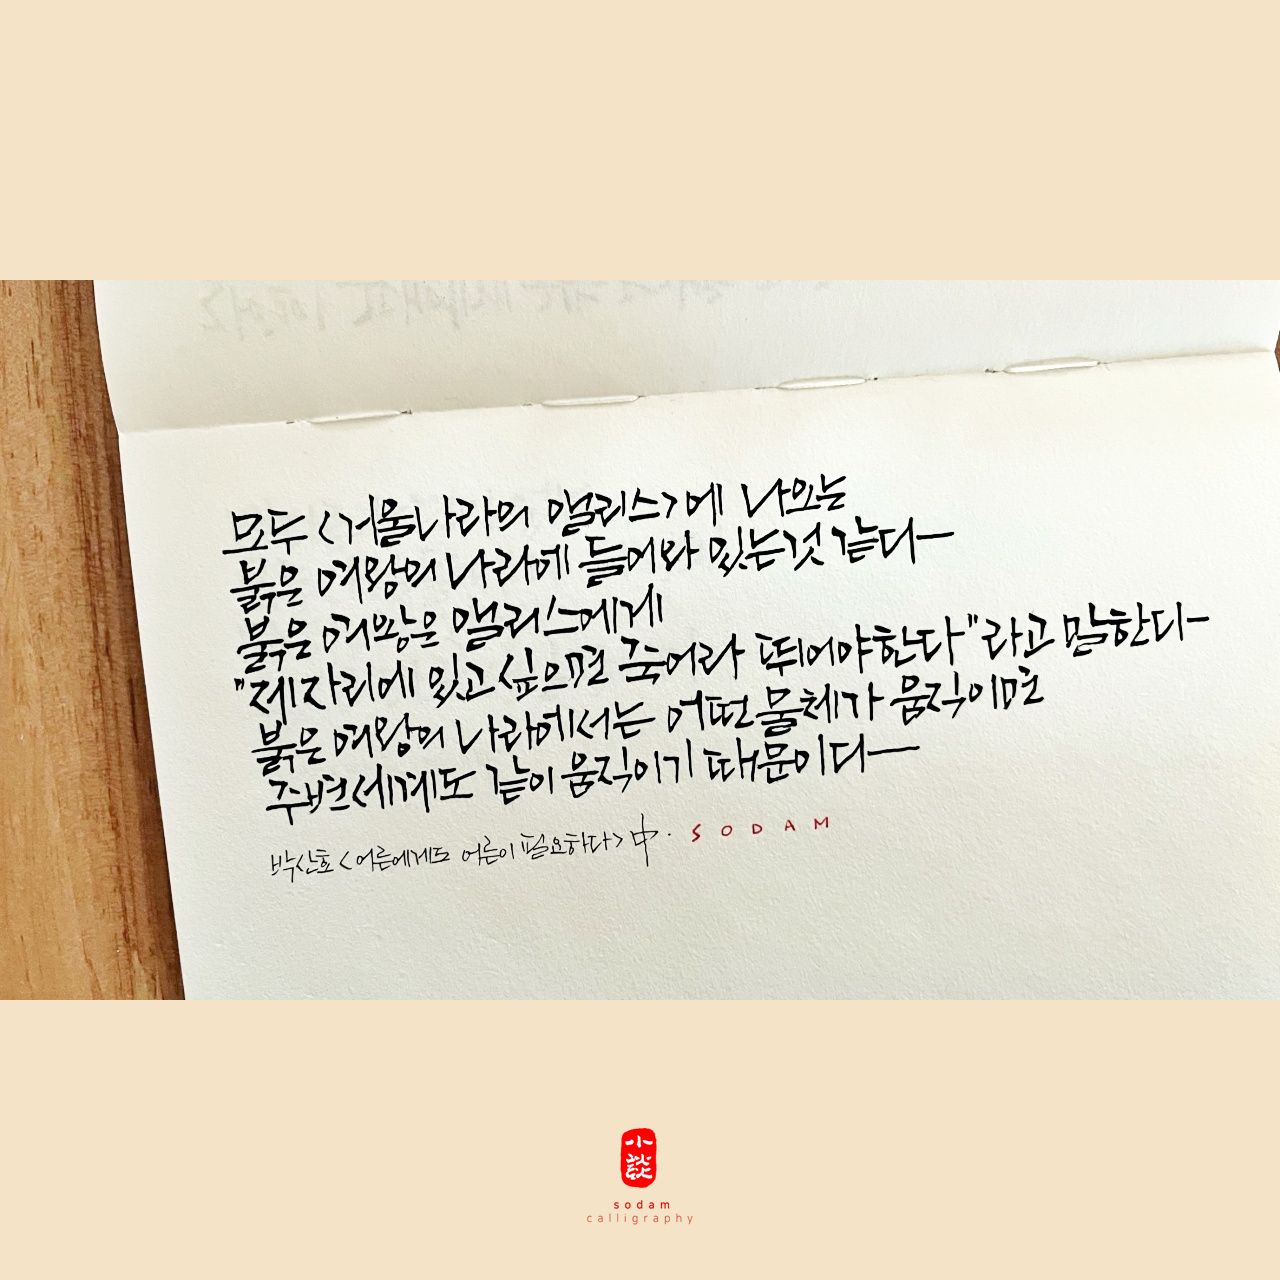 모두 <거울나라의 앨리스>에 나오는
붉은 여왕의 나라에 들어와 있는것 같다-
붉은 여왕은 앨리스에게
"제자리에 있고 싶으면 죽어라 뛰어야한다"라고 말한다-
붉은 여왕의 나라에서는 어떤 물체가 움직이면
주변세계도 같이 움직이기 때문이다-
박산호 <어른에게도 어른이 필요하다> 中. SODAM
小談
sodam
calligraphy